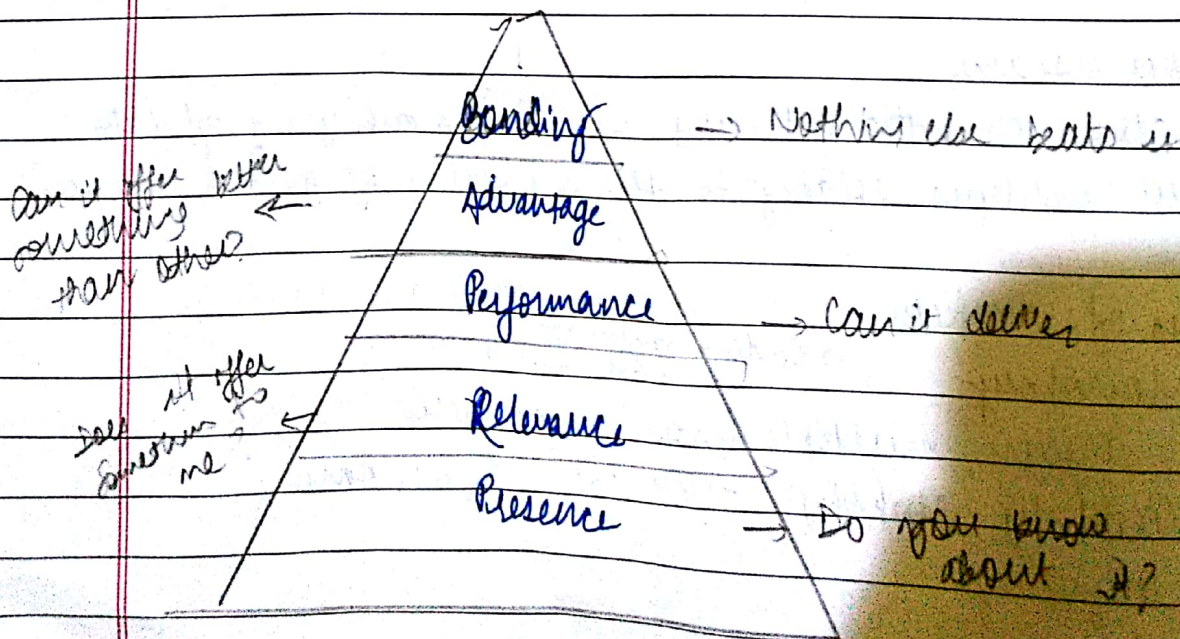 Bonding → Nothing else beats it
Can it offer
something better
than other?
← Advantage
Performance → Can it deliver
Does it offer
something to
me?
← Relevance
Presence → Do you know
about it?